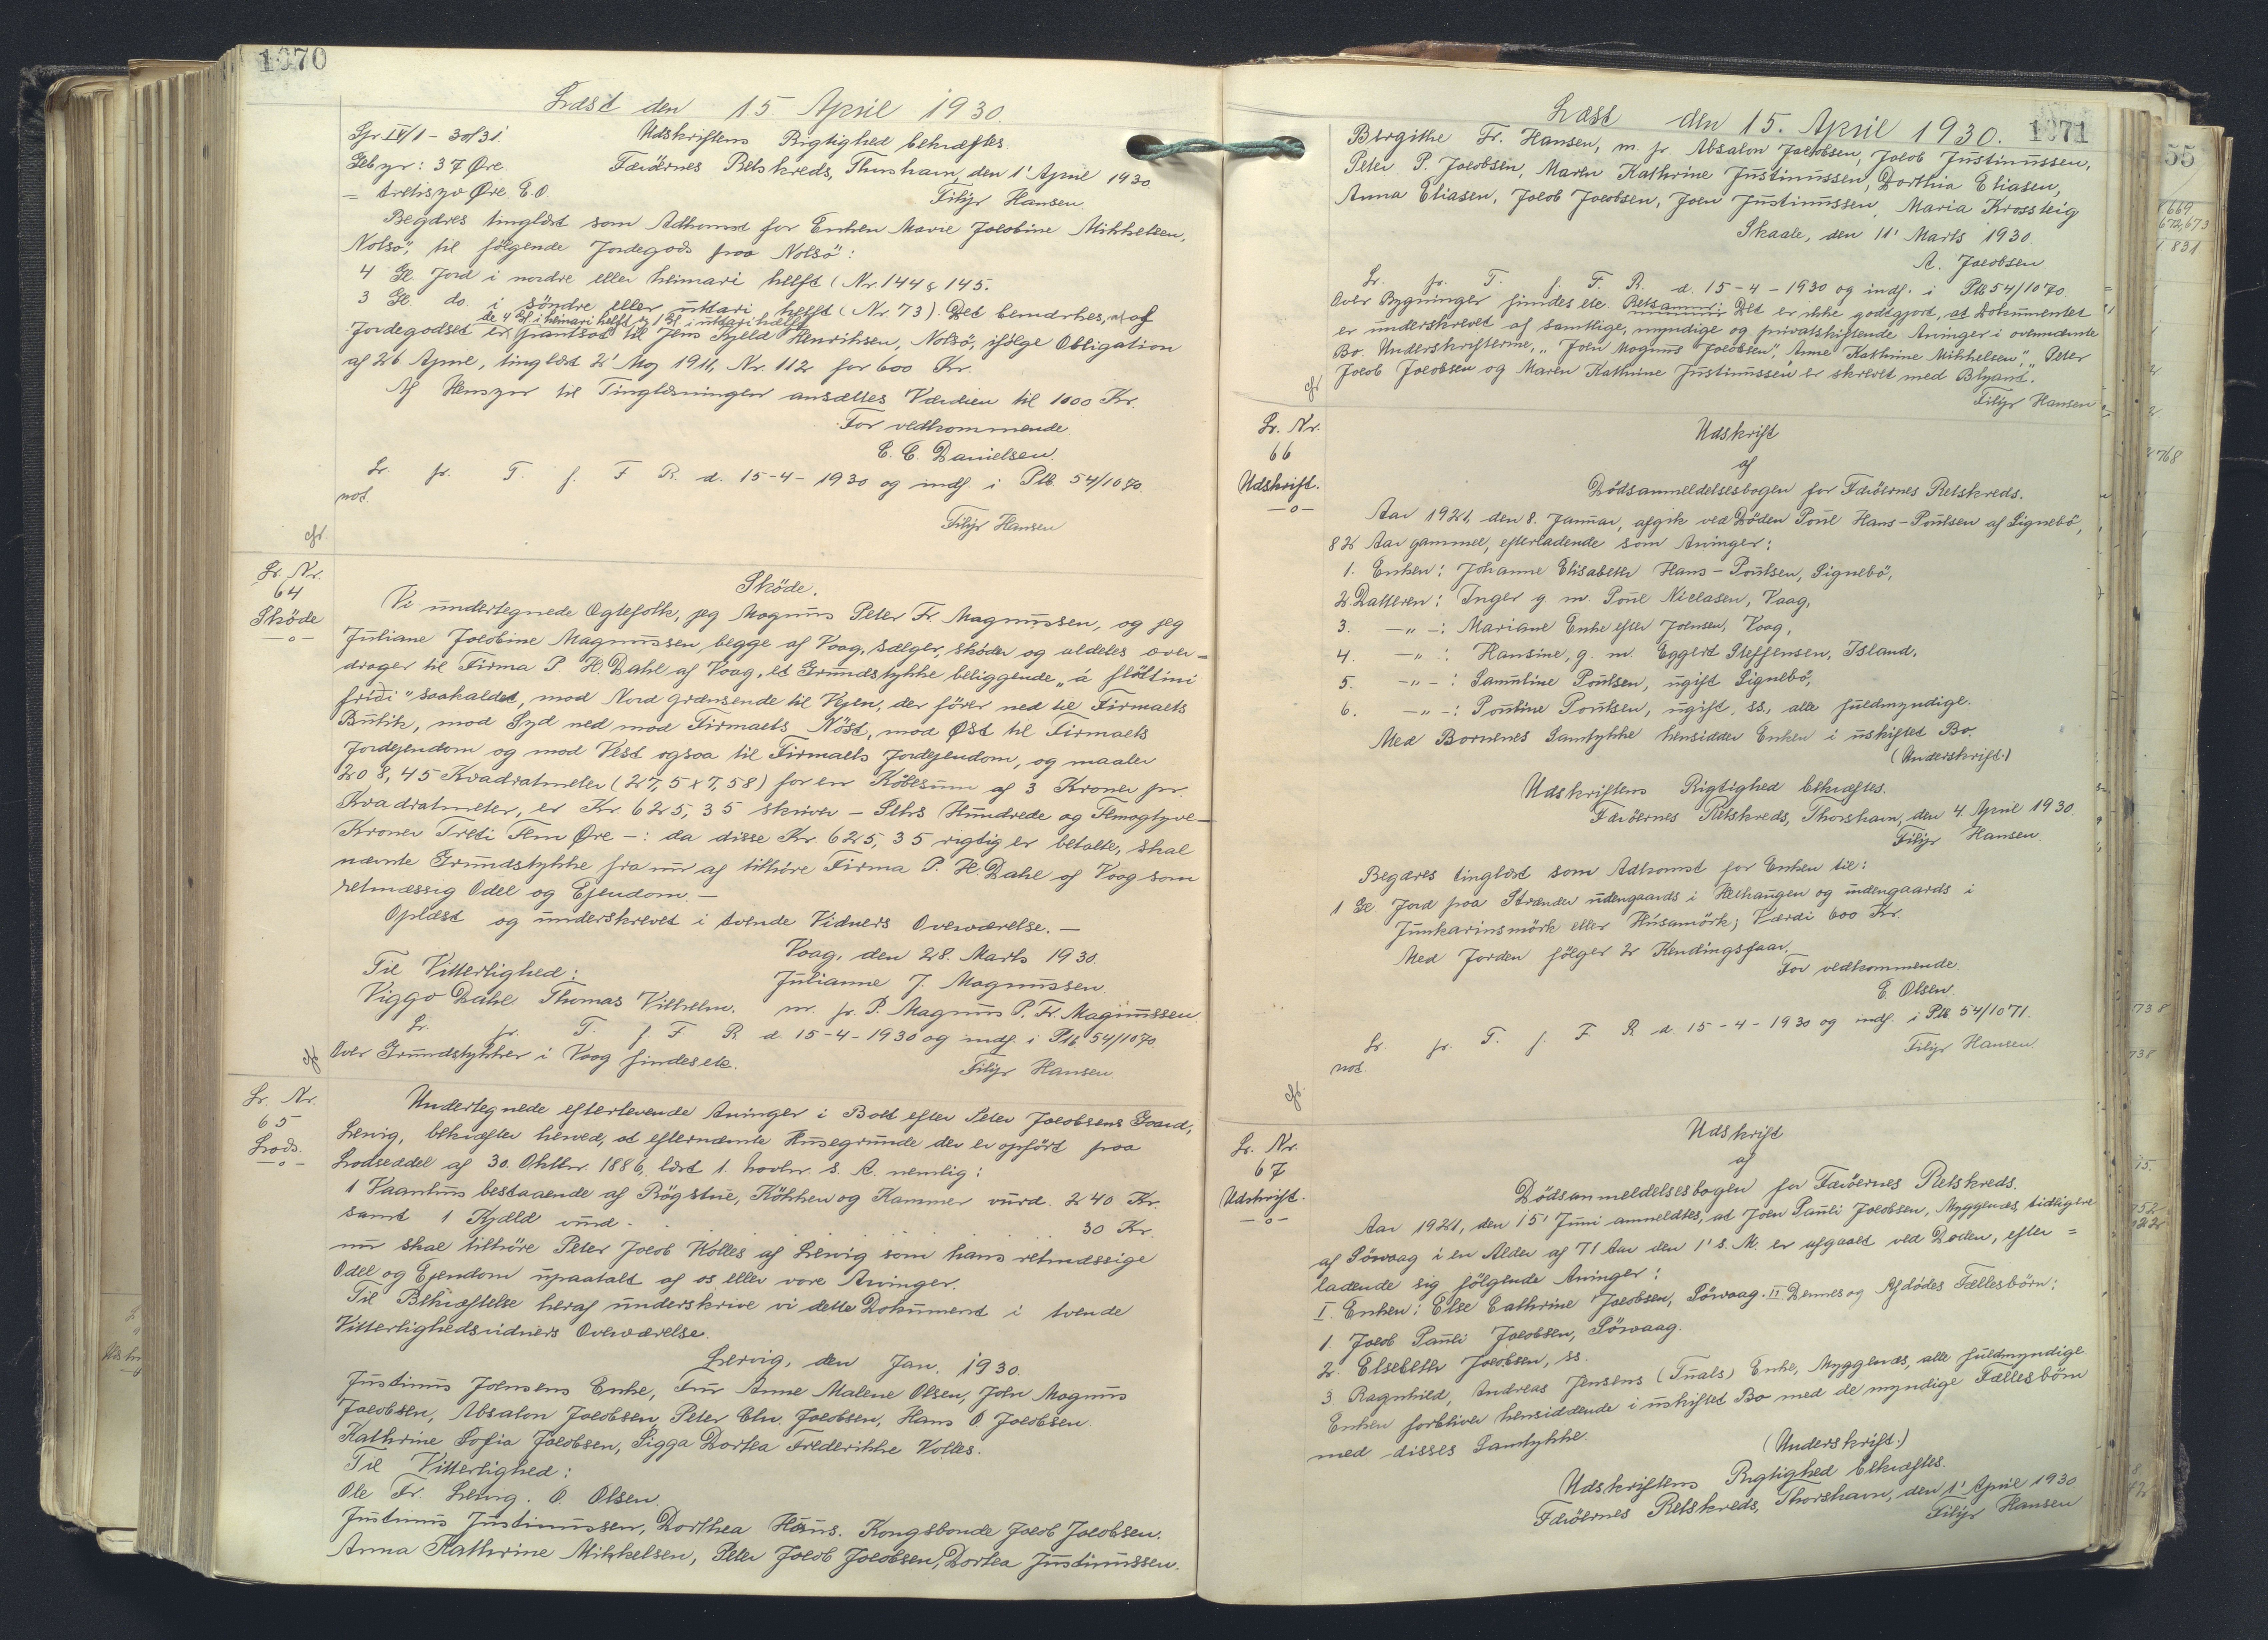 1070
Læst den 15. April 1930.
Gr. IV/1 - 30/31
Udskriftens Rigtighed bekræftes.
Gebyr: 37 Øre.
Færöernes Retskreds, Thorshavn, den 1' April 1930.
= tretisyv Øre. E. O.
Filip Hansen
Begæres tinglæst som Adkomst for Enken Marie Jacobine Mikkelsen,
Nolsö, til følgende Jordegods paa Nolsö:
4 Gl. Jord i nordre eller heimari helft (Nr. 144 & 145.
3 Gl. do. i söndre eller uttari helft (Nr. 73). Det bemærkes, at af
de 4 Gl i heimari helft og 1 Gl. i uttari helft
Jordegodset er pantsat til Jens Kjeld Henriksen, Nolsö, ifølge Obligation
af 26 April, tinglæst 2' Maj 1911, Nr. 112 for 600 Kr.
Af Hensyn til Tinglæsningen ansættes Værdien til 1000 Kr.
For vedkommende
E. C. Danielsen.
Lr. fr. T. f. F R. d. 15-4-1930 og indf. i Ptb. 54/1070.
not.
Filip Hansen
cfr.
Lr. Nr.
64
Sköde
—o—
Sköde.
Vi undertegnede Ægtefolk, jeg Mogens Peter Fr. Magnussen, og jeg
Juliane Jacobine Magnussen begge af Vaag, sælger, sköder og aldeles over=
drager til Firma P. H. Dahl af Vaag, et Grundstykke beliggende „á fløttini
fríði" saakaldet, mod Nord grænsende til Vejen, der fører ned til Firmaets
Butik, mod Syd ned mod Firmaets Nöst, mod Øst til Firmaets
Jordejendom og mod Vest ogsaa til Firmaets Jordejendom, og maaler
208,45 Kvadratmeter (27,5 x 7,58) for en Købesum af 3 Kroner pr.
Kvadratmeter, er Kr. 625,35 skriver — Seks Hundrede og Femogtyve —
Kroner Treti Fem Øre —: da disse Kr. 625,35 rigtig er betalte, skal
nævnte Grundstykke fra nu af tilhøre Firma P. H. Dahl af Vaag som
retmæssig Odel og Ejendom. —
Oplæst og underskrevet i tvende Vidners Overværelse. —
Vaag, den 28. Marts 1930.
Til Vitterlighed:
Julianne J. Magnussen.
Viggo Dahl Thomas Vilhelm. m. fr. P. Magnus P. Fr. Magnussen.
Lr. fr. T. f. F R d. 15-4-1930 og indf. i Ptb. 54/1070.
Over Grundstykker i Vaag findes etc.
cfr
Filip Hansen.
Lr. Nr.
65
Lods.
—o—
Undertegnede efterlevende Arvinger i Boet efter Peter Jacobsens Gaard,
Lervig, bekræfter herved, at efternævnte Husegrunde der er opført paa
Lodseddel af 30. Oktbr. 1886, læst 1. Novbr. s. A. nemlig:
1 Vaanhus bestaaende af Rögstue, Kökken og Kammer vurd. 240 Kr.
samt 1 Kjæld vurd. . . . . . 30 Kr.
nu skal tilhöre Peter Jacob Kolles af Lervig som hans retmæssige
Odel og Ejendom upaatalt af os eller vore Arvinger.
Til Bekræftelse heraf underskrive vi dette Dokument i tvende
Vitterlighedsvidners Overværelse.
Lervig, den Jan. 1930.
Justinus Joensens Enke, Fru Anne Malene Olsen, John Magnus
Jacobsen, Absalon Jacobsen, Peter Chr. Jacobsen, Hans O Jacobsen
Kathrine Sofia Jacobsen, Sigga Dortea Frederikke Kolles.
Til Vitterlighed:
Ole Fr. Lervig. O. Olsen.
Justinus Justinussen, Dorthea Haus. Kongsbonde Jacob Jacobsen.
Anna Kathrine Mikkelsen, Peter Jacob Jacobsen, Dortea Justinussen.
1071
Læst den 15. April 1930.
Birgithe Fr. Hansen, m. fr. Absalon Jacobsen, Jacob Justinussen,
Peter P. Jacobsen, Maren Kathrine Justinussen, Dorthia Eliasen,
Anna Eliasen, Jacob Jacobsen, Joen Justinussen, Maria Krossteig
Skaale, den 11' Marts 1930.
A. Jacobsen
Lr. fr. T. f. F. R. d. 15-4-1930 og indf. i Ptb 54/1070.
Over Bygninger findes etc. Retsanm: Det er ikke godtgjort, at Dokumentet
er underskrevet af samtlige, myndige og privatskiftende Arvinger i ovennævnte
Bo. Underskrifterne, „Joen Magnus Jacobsen", Anne Kathrine Mikkelsen", „Peter
Jacob Jacobsen og Maren Kathrine Justinussen er skrevet med Blyant."
Filip Hansen
cfr
Lr. Nr.
66
Udskrift.
—o—
Udskrift
af
Dödsanmeldelsesbogen for Færöernes Retskreds.
Aar 1921, den 8. Januar, afgik ved Döden Poul Hans-Poulsen af Signebö,
82 Aar gammel, efterladende som Arvinger:
1. Enken: Johanne Elisabeth Hans-Poulsen, Signebö,
2. Datteren: Inger g. m. Poul Niclasen, Vaag,
3. —„—: Mariane Enke efter Joensen, Vaag,
4. —„—: Hansine, g. m. Eggert Steffensen, Island,
5. —„—: Samuline Poulsen, ugift Signebö,
6. —„—: Pouline Poulsen, ugift, ss, alle fuldmyndige.
Med Børnenes Samtykke hensidder Enken i uskiftet Bo.
(Underskrift.)
Udskriftens Rigtighed bekræftes.
Færöernes Retskreds, Thorshavn, den 4. April 1930.
Filip Hansen.
Begæres tinglæst som Adkomst for Enken til:
1 Gl. Jord paa Strænder udengaards i Helhaugen og indengaards i
Junkarinsmörk eller Húsamörk; Værdi 600 Kr.
Med Jorden fölger 2 Kendingsfaar.
For vedkommende
E. Olsen.
Lr. fr. T. f. F R d. 15-4-1930 og indf. i Ptb 54/1071.
not
Filip Hansen
cfr.
Lr. Nr.
67
Udskrift.
—o—
Udskrift
af
Dödsanmeldelsesbogen for Færöernes Retskreds.
Aar 1921, den 15' Juni anmeldtes, at Joen Pauli Jacobsen, Myggenæs, tidligere
af Sörvaag i en Alder af 71 Aar den 1' s. M. er afgaaet ved Døden, efter=
ladende sig fölgende Arvinger:
I. Enken: Else Cathrine Jacobsen, Sörvaag. II Dennes og Afdödes Fællesbörn:
1. Jacob Pauli Jacobsen, Sörvaag.
2. Elsebeth Jacobsen, ss.
3 Ragnhild, Andreas Jensens (Tuals) Enke, Myggenæs, alle fuldmyndige.
Enken forbliver hensiddende i uskiftet Bo med de myndige Fællesbörn
med disses Samtykke.
(Underskrift.)
Udskriftens Rigtighed bekræftes.
Færöernes Retskreds, Thorshavn, den 1' April 1930
Filip Hansen
55
669
672,673
831
768
738
738
15.
752